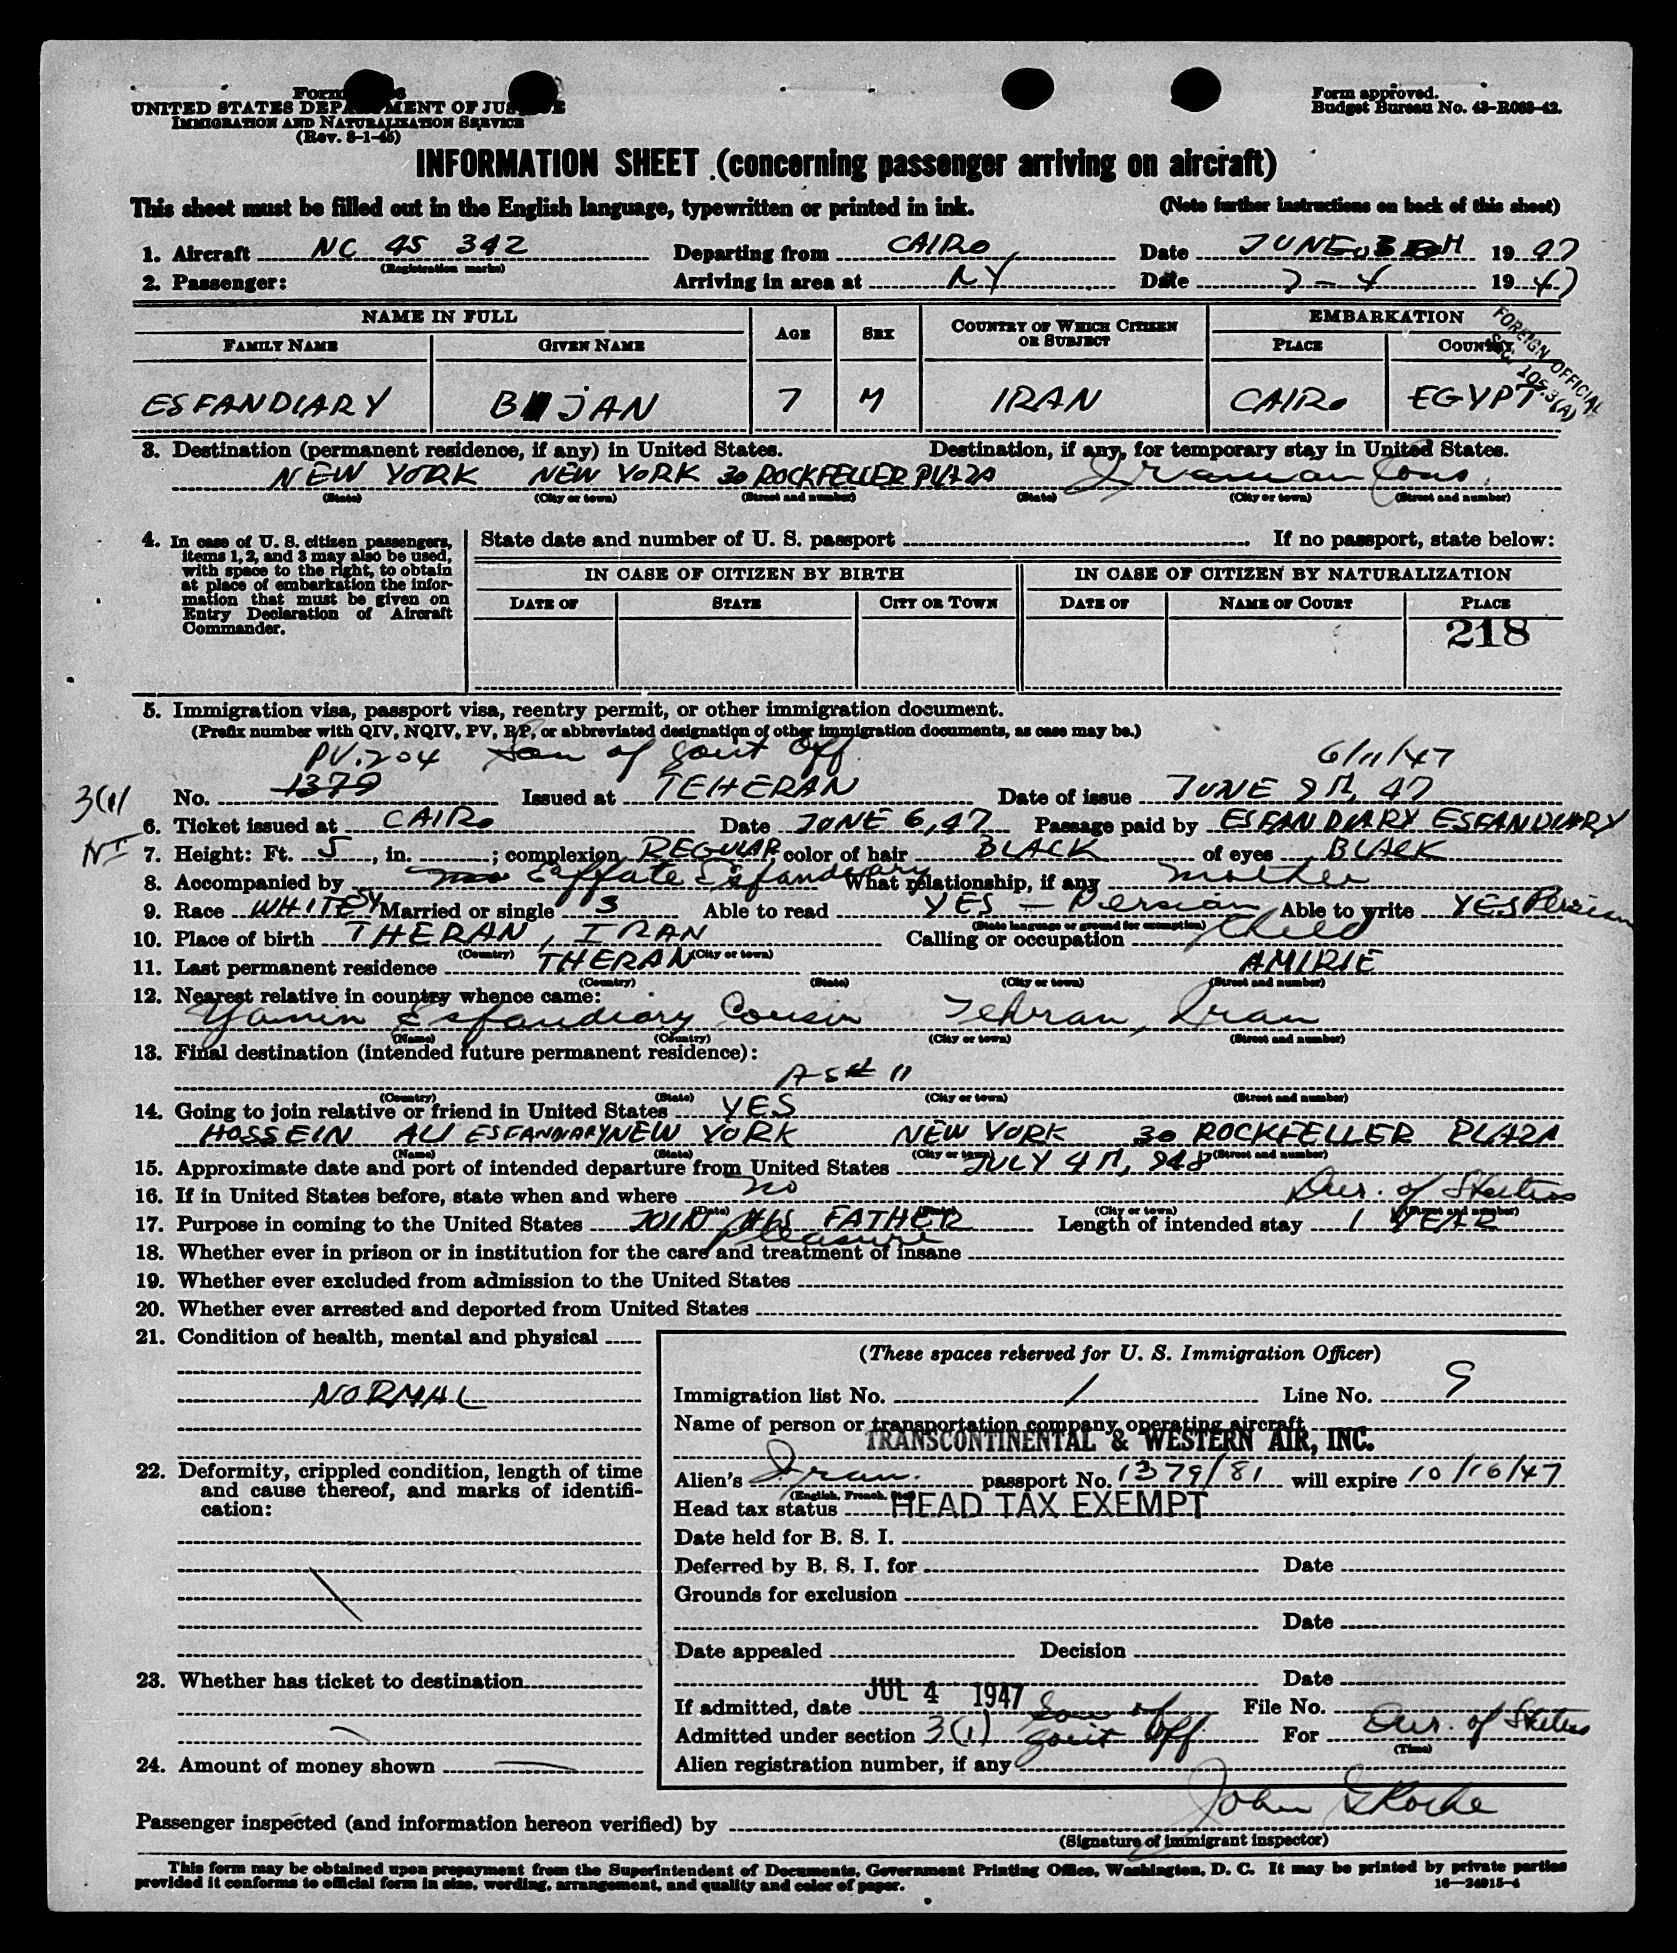 Form
UNITED STATES DEPARTMENT OF JUSTICE
IMMIGRATION AND NATURALIZATION SERVICE
(Rev. 8-1-45)
Form approved.
Budget Bureau No. 43-R068-42.
INFORMATION SHEET (concerning passenger arriving on aircraft)
This sheet must be filled out in the English language, typewritten or printed in ink. (Note further instructions on back of this sheet)
1. Aircraft NC 45 342 Departing from CAIRO Date JUNE 19 47
(Registration marks)
2. Passenger: Arriving in area at NY Date 7-4 19 47
NAME IN FULL AGE SEX COUNTRY OF WHICH CITIZEN OR SUBJECT EMBARKATION
FAMILY NAME GIVEN NAME PLACE COUNTRY
FOREIGN OFFICIAL
SEC. 105.3(A)
ESFANDIARY BIJAN 7 M IRAN CAIRO EGYPT
3. Destination (permanent residence, if any) in United States. Destination, if any, for temporary stay in United States.
NEW YORK NEW YORK 30 ROCKFELLER PLAZA Iranian Cons.
(State) (City or town) (Street and number) (State) (City or town) (Street and number)
4. In case of U. S. citizen passengers, items 1, 2, and 3 may also be used, with space to the right, to obtain at place of embarkation the information that must be given on Entry Declaration of Aircraft Commander.
State date and number of U. S. passport If no passport, state below:
IN CASE OF CITIZEN BY BIRTH IN CASE OF CITIZEN BY NATURALIZATION
DATE OF STATE CITY OR TOWN DATE OF NAME OF COURT PLACE
218
5. Immigration visa, passport visa, reentry permit, or other immigration document.
(Prefix number with QIV, NQIV, PV, RP, or abbreviated designation of other immigration documents, as case may be.)
PV.204 Son of Govt Off 6/11/47
3(1) No. 1379 Issued at TEHERAN Date of issue JUNE 9TH, 47
6. Ticket issued at CAIRO Date JUNE 6, 47 Passage paid by ESFANDIARY ESFANDIARY
7. Height: Ft. 5, in. ; complexion REGULAR color of hair BLACK of eyes BLACK
8. Accompanied by Esfandiary What relationship, if any mother
9. Race WHITE Married or single S Able to read YES - Persian Able to write YES Persian
(State language or ground for exemption)
10. Place of birth THERAN, IRAN Calling or occupation Child
(Country) (City or town)
11. Last permanent residence THERAN AMIRIE
(Country) (State) (City or town) (Street and number)
12. Nearest relative in country whence came:
Yamin Esfandiary Cousin Tehran, Iran
(Name) (Country) (City or town) (Street and number)
13. Final destination (intended future permanent residence):
AS # 11
(Country) (State) (City or town) (Street and number)
14. Going to join relative or friend in United States YES
HOSSEIN ALI ESFANDIARY NEW YORK NEW YORK 30 ROCKFELLER PLAZA
(Name) (State) (City or town) (Street and number)
15. Approximate date and port of intended departure from United States JULY 4TH, 948
16. If in United States before, state when and where no Dur. of Status
(Date) (State) (City or town) (Street and number)
17. Purpose in coming to the United States JOIN HIS FATHER Length of intended stay 1 YEAR
pleasure
18. Whether ever in prison or in institution for the care and treatment of insane
19. Whether ever excluded from admission to the United States
20. Whether ever arrested and deported from United States
21. Condition of health, mental and physical
NORMAL
22. Deformity, crippled condition, length of time and cause thereof, and marks of identification:
23. Whether has ticket to destination
24. Amount of money shown
(These spaces reserved for U. S. Immigration Officer)
Immigration list No. 1 Line No. 9
Name of person or transportation company operating aircraft
TRANSCONTINENTAL & WESTERN AIR, INC.
Alien's Iran. passport No. 1379/81 will expire 10/16/47
(English, French, etc.)
Head tax status HEAD TAX EXEMPT
Date held for B. S. I.
Deferred by B. S. I. for Date
Grounds for exclusion
Date
Date appealed Decision
Date
If admitted, date JUL 4 1947 File No.
Son of
Admitted under section 3(1) Govt Off For Dur. of Status
(Time)
Alien registration number, if any
Passenger inspected (and information hereon verified) by John G Roche
(Signature of immigrant inspector)
This form may be obtained upon prepayment from the Superintendent of Documents, Government Printing Office, Washington, D. C. It may be printed by private parties
provided it conforms to official form in size, wording, arrangement, and quality and color of paper. 16—24915-4